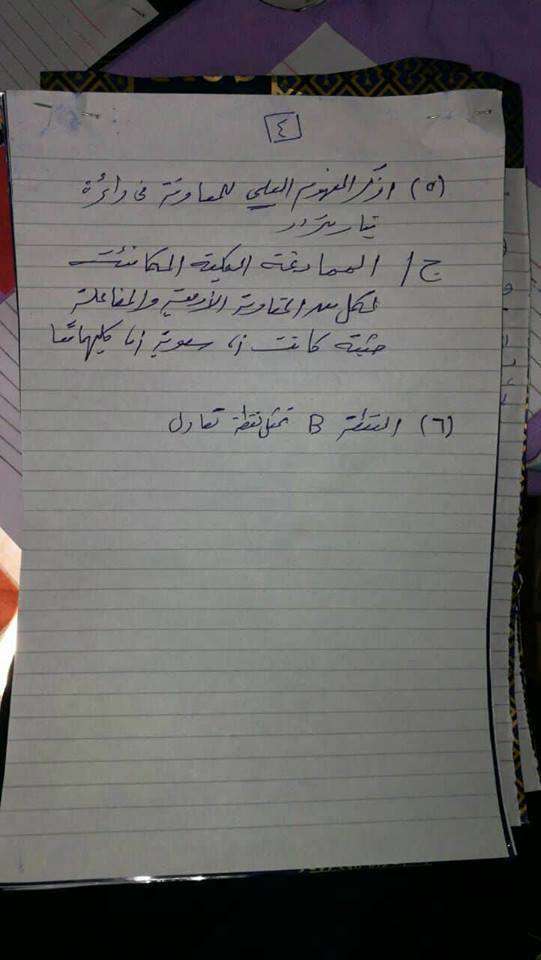 ٤
(٥) اذكر المفهوم العلمي للمعاوقة في دائرة
تيار متردد
ج/ الممانعة الكلية المكافئة
لكل من المقاومة الأومية والمفاعلة
حثية كانت أم سعوية أم كليهما معًا
(٦) النقطة B تمثل نقطة تعادل